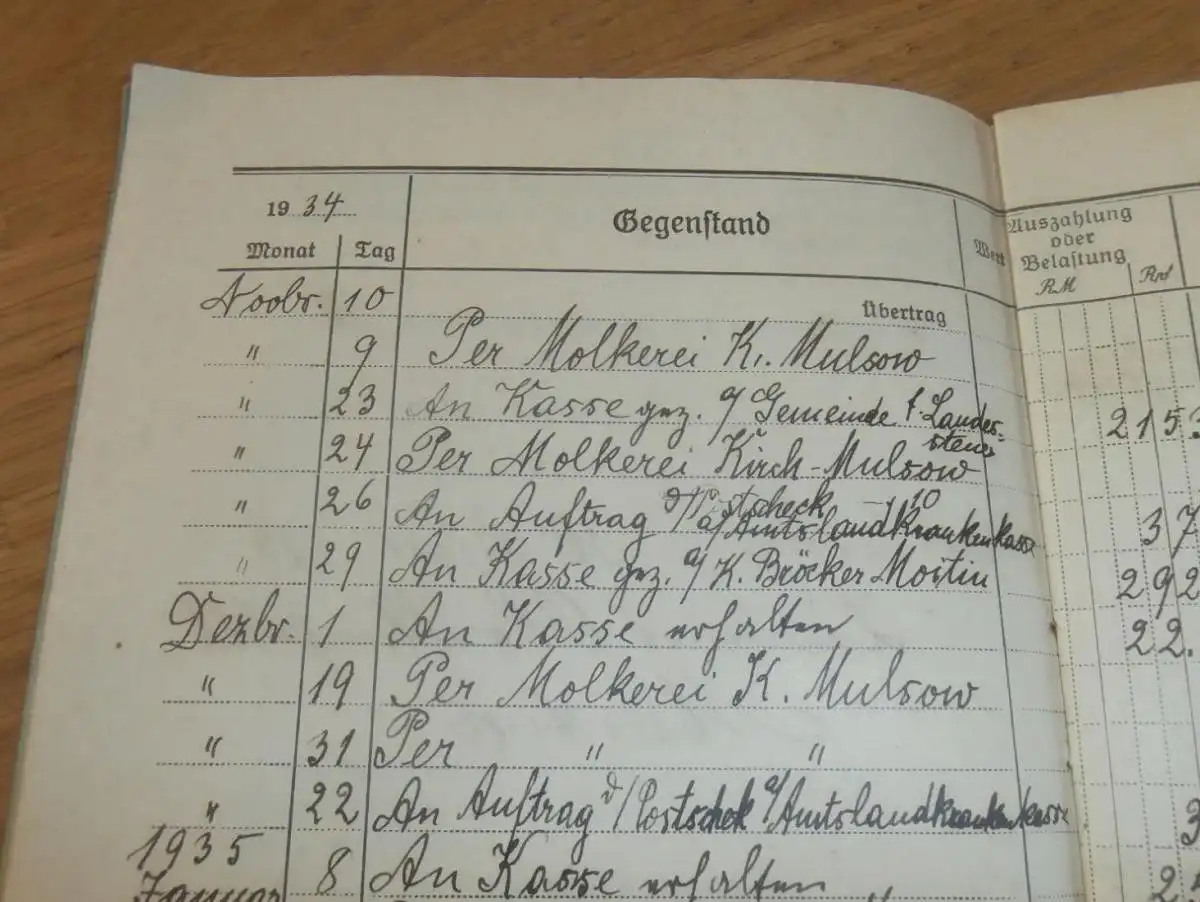 1934
Gegenstand
Monat Tag
Wert
Auszahlung
oder
Belastung
RM Rpf
Novbr. 10 Übertrag
" 9 Per Molkerei K. Mulsow
" 23 An Kasse gez. a/ Gemeinde f. Landes- 215
steuer
" 24 Per Molkerei Kirch-Mulsow
" 26 An Auftrag d/Postscheck 10
a/Amtslandkrankenkasse 37
" 29 An Kasse gez. a/ K. Bröcker Moitin 292
Dezbr. 1 An Kasse erhalten 22.
" 19 Per Molkerei K. Mulsow
" 31 Per " "
" 22 An Auftrag d/Postscheck a/Amtslandkrankenkasse 3
1935
Januar 8 An Kasse erhalten 2